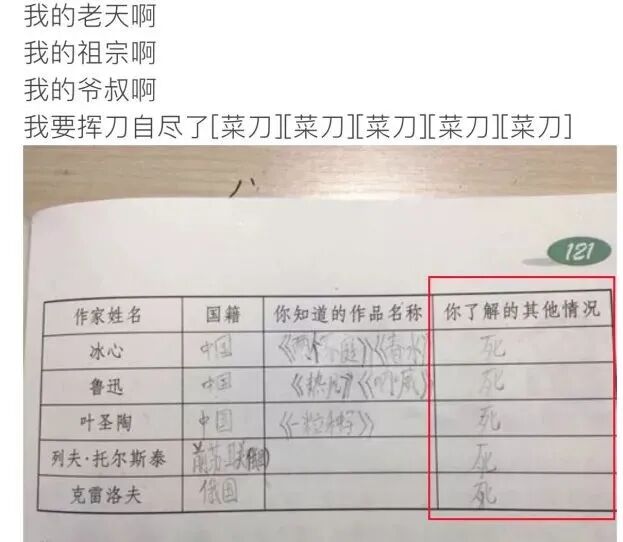 我的老天啊
我的祖宗啊
我的爷叔啊
我要挥刀自尽了[菜刀][菜刀][菜刀][菜刀][菜刀]
121
作家姓名 国籍 你知道的作品名称 你了解的其他情况
冰心 中国 《两个家庭》《春水》 死
鲁迅 中国 《热风》《呐喊》 死
叶圣陶 中国 《一粒种子》 死
列夫·托尔斯泰 前苏联(俄国) 死
克雷洛夫 俄国 死